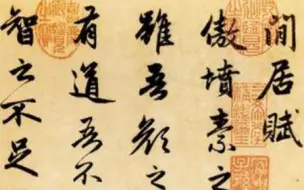 閒居賦
傲墳素之
雖吾顏之
有道吾不
智之不足